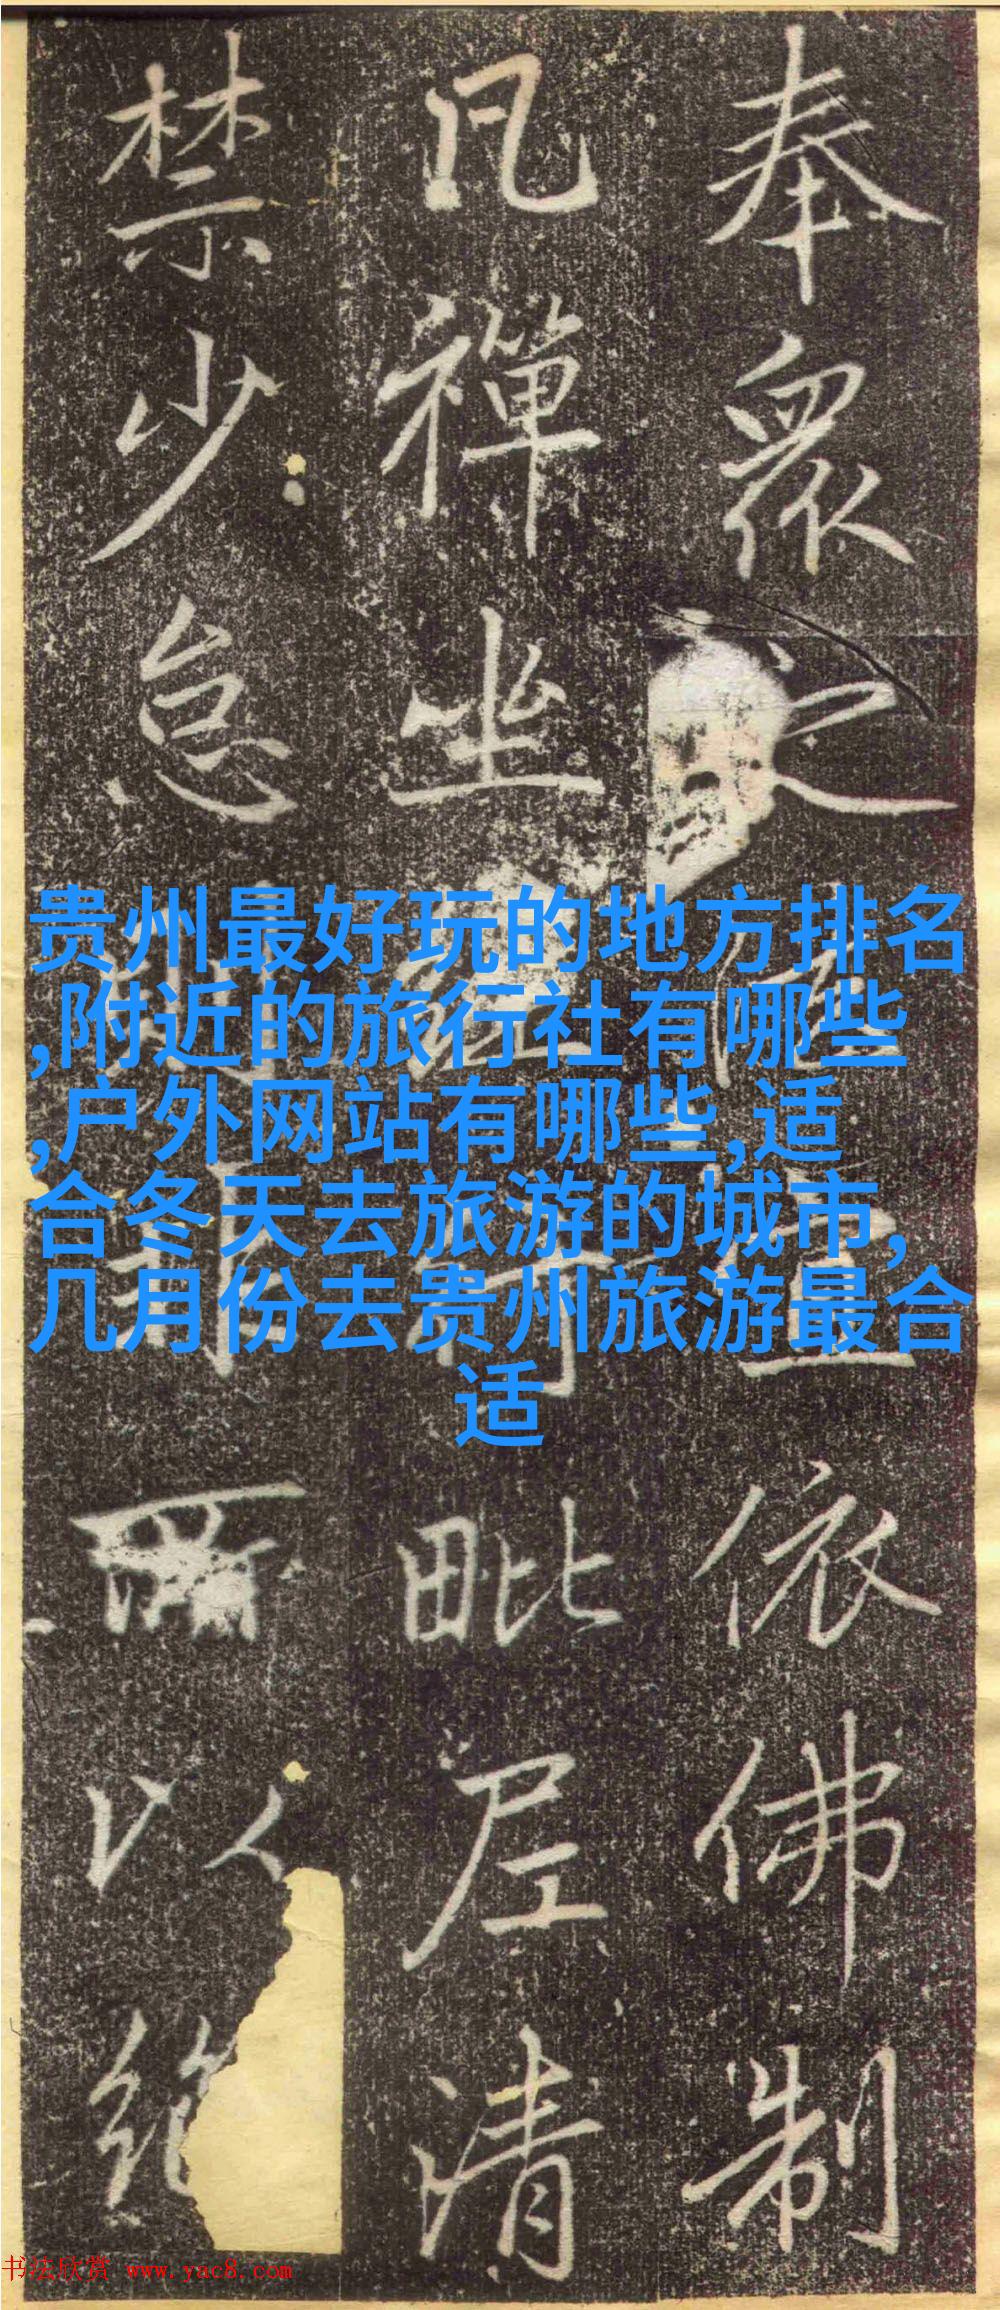 奉眾
凡禪坐
禁少怠
贵州最好玩的地方排名
,附近的旅行社有哪些
,户外网站有哪些,适
合冬天去旅游的城市,
几月份去贵州旅游最合
适
依佛制
毗尼清
以絕
书法欣赏 www.yac8.com